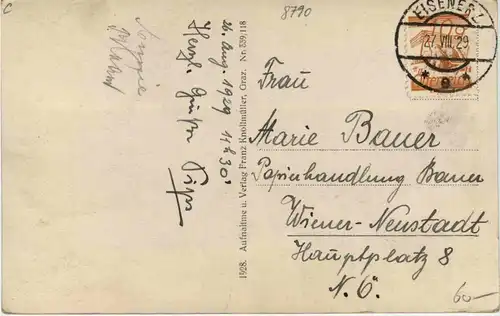 8790
EISENERZ
27.VIII.29
* e *
26. Aug. 1929 11h30'
Herzl. Grüße
1928. Aufnahme u. Verlag Franz Knollmüller, Graz. Nr. 539,118
Frau
Marie Bauer
Papierhandlung Bauer
Wiener-Neustadt
Hauptplatz 8
N.Ö.
60-